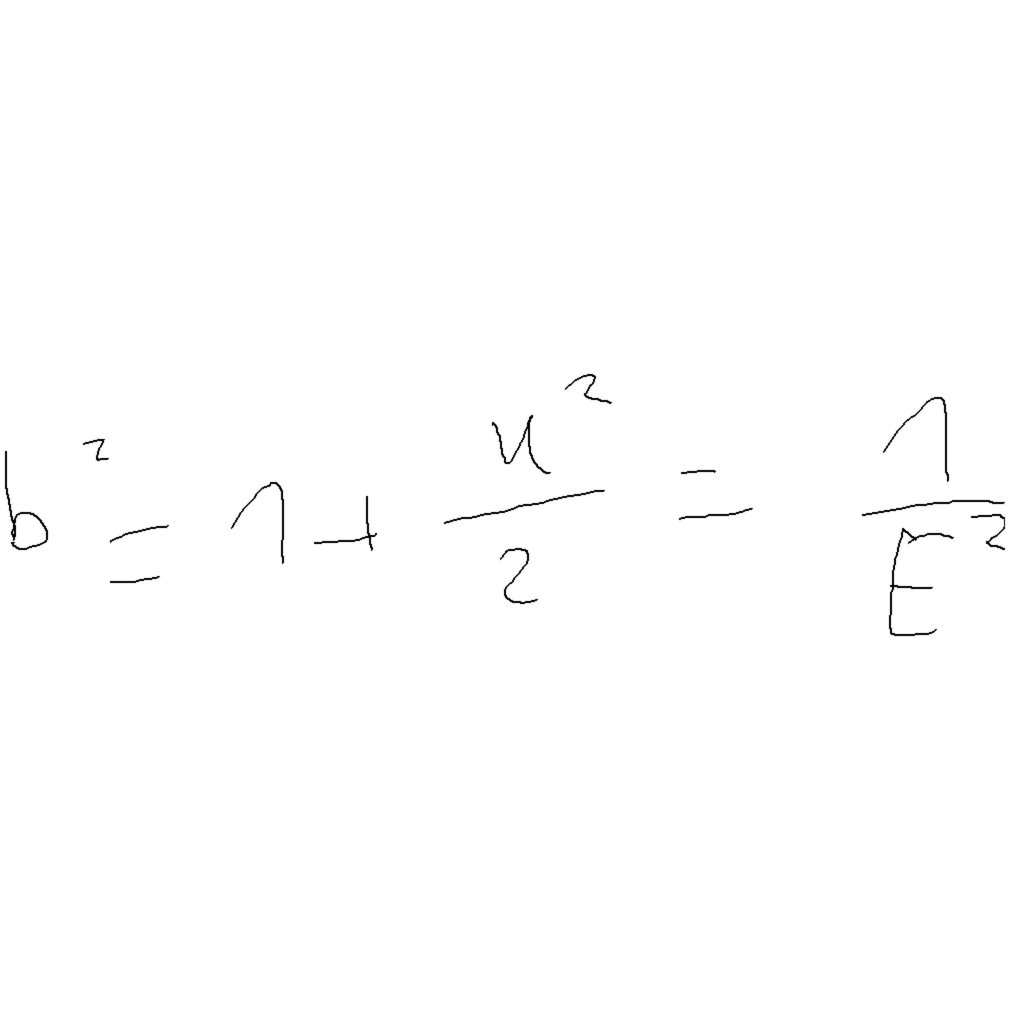 b² = 1 + u²/2 = 1/E²